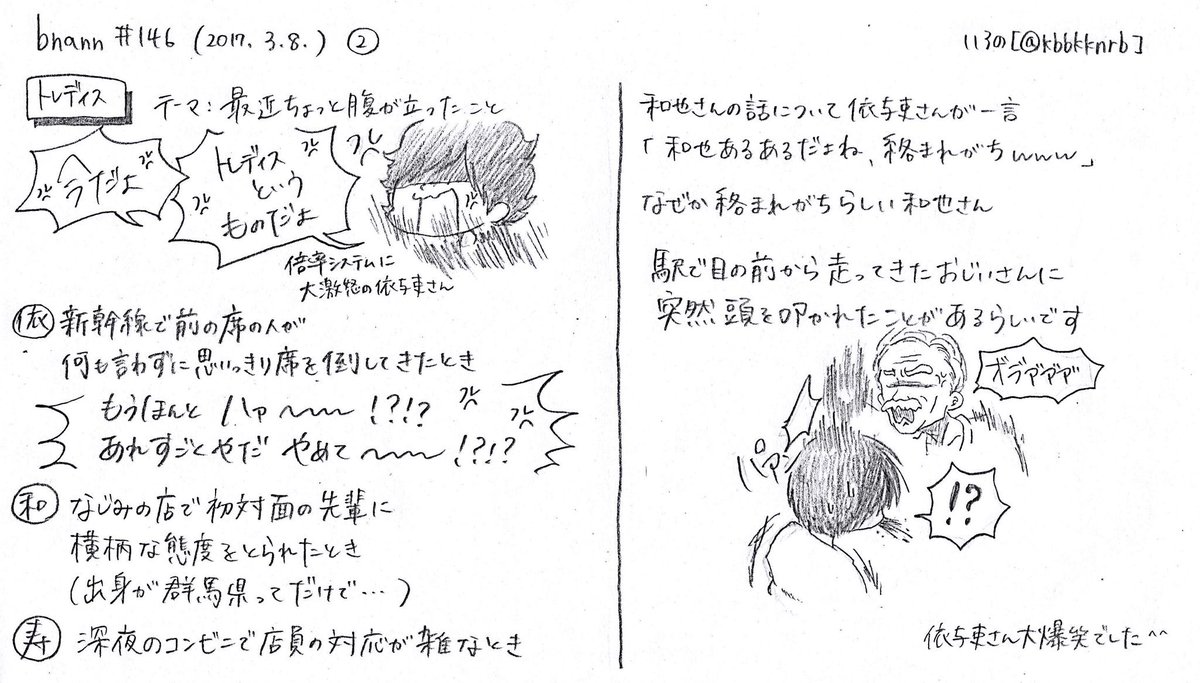 bnann #146 (2017. 3. 8.) ②
いろの[@kbbkknrb]
トレディス
テーマ: 最近ちょっと腹が立ったこと
今だよ
トレディス
という
ものだよ
倍率システムに
大激怒の依与吏さん
依 新幹線で前の席の人が
何も言わずに思いっきり席を倒してきたとき
もうほんと ハァ〜〜〜 !?!?
あれすごとやだ やめて〜〜〜 !?!?
和 なじみの店で初対面の先輩に
横柄な態度をとられたとき
(出身が群馬県ってだけで…)
寿 深夜のコンビニで店員の対応が雑なとき
和也さんの話について依与吏さんが一言
「和也あるあるだよね、絡まれがちwww」
なぜか絡まれがちらしい和也さん
駅で目の前から走ってきたおじいさんに
突然頭を叩かれたことがあるらしいです
オラァァァ
パァン
!?
依与吏さん大爆笑でした^^